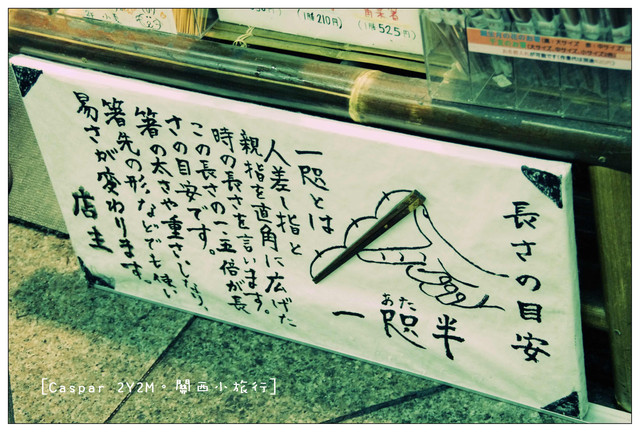 長さの目安
一咫半
あた
一咫とは
人差し指と
親指を直角に広げた
時の長さを言います。
この長さの一・五倍が長
さの目安です。
箸の太さや重さ、しなり、
箸先の形などでも使い
易さが変わります。
店主
(1膳210円)
(1膳525円)
[Caspar.2Y2M。關西小旅行]